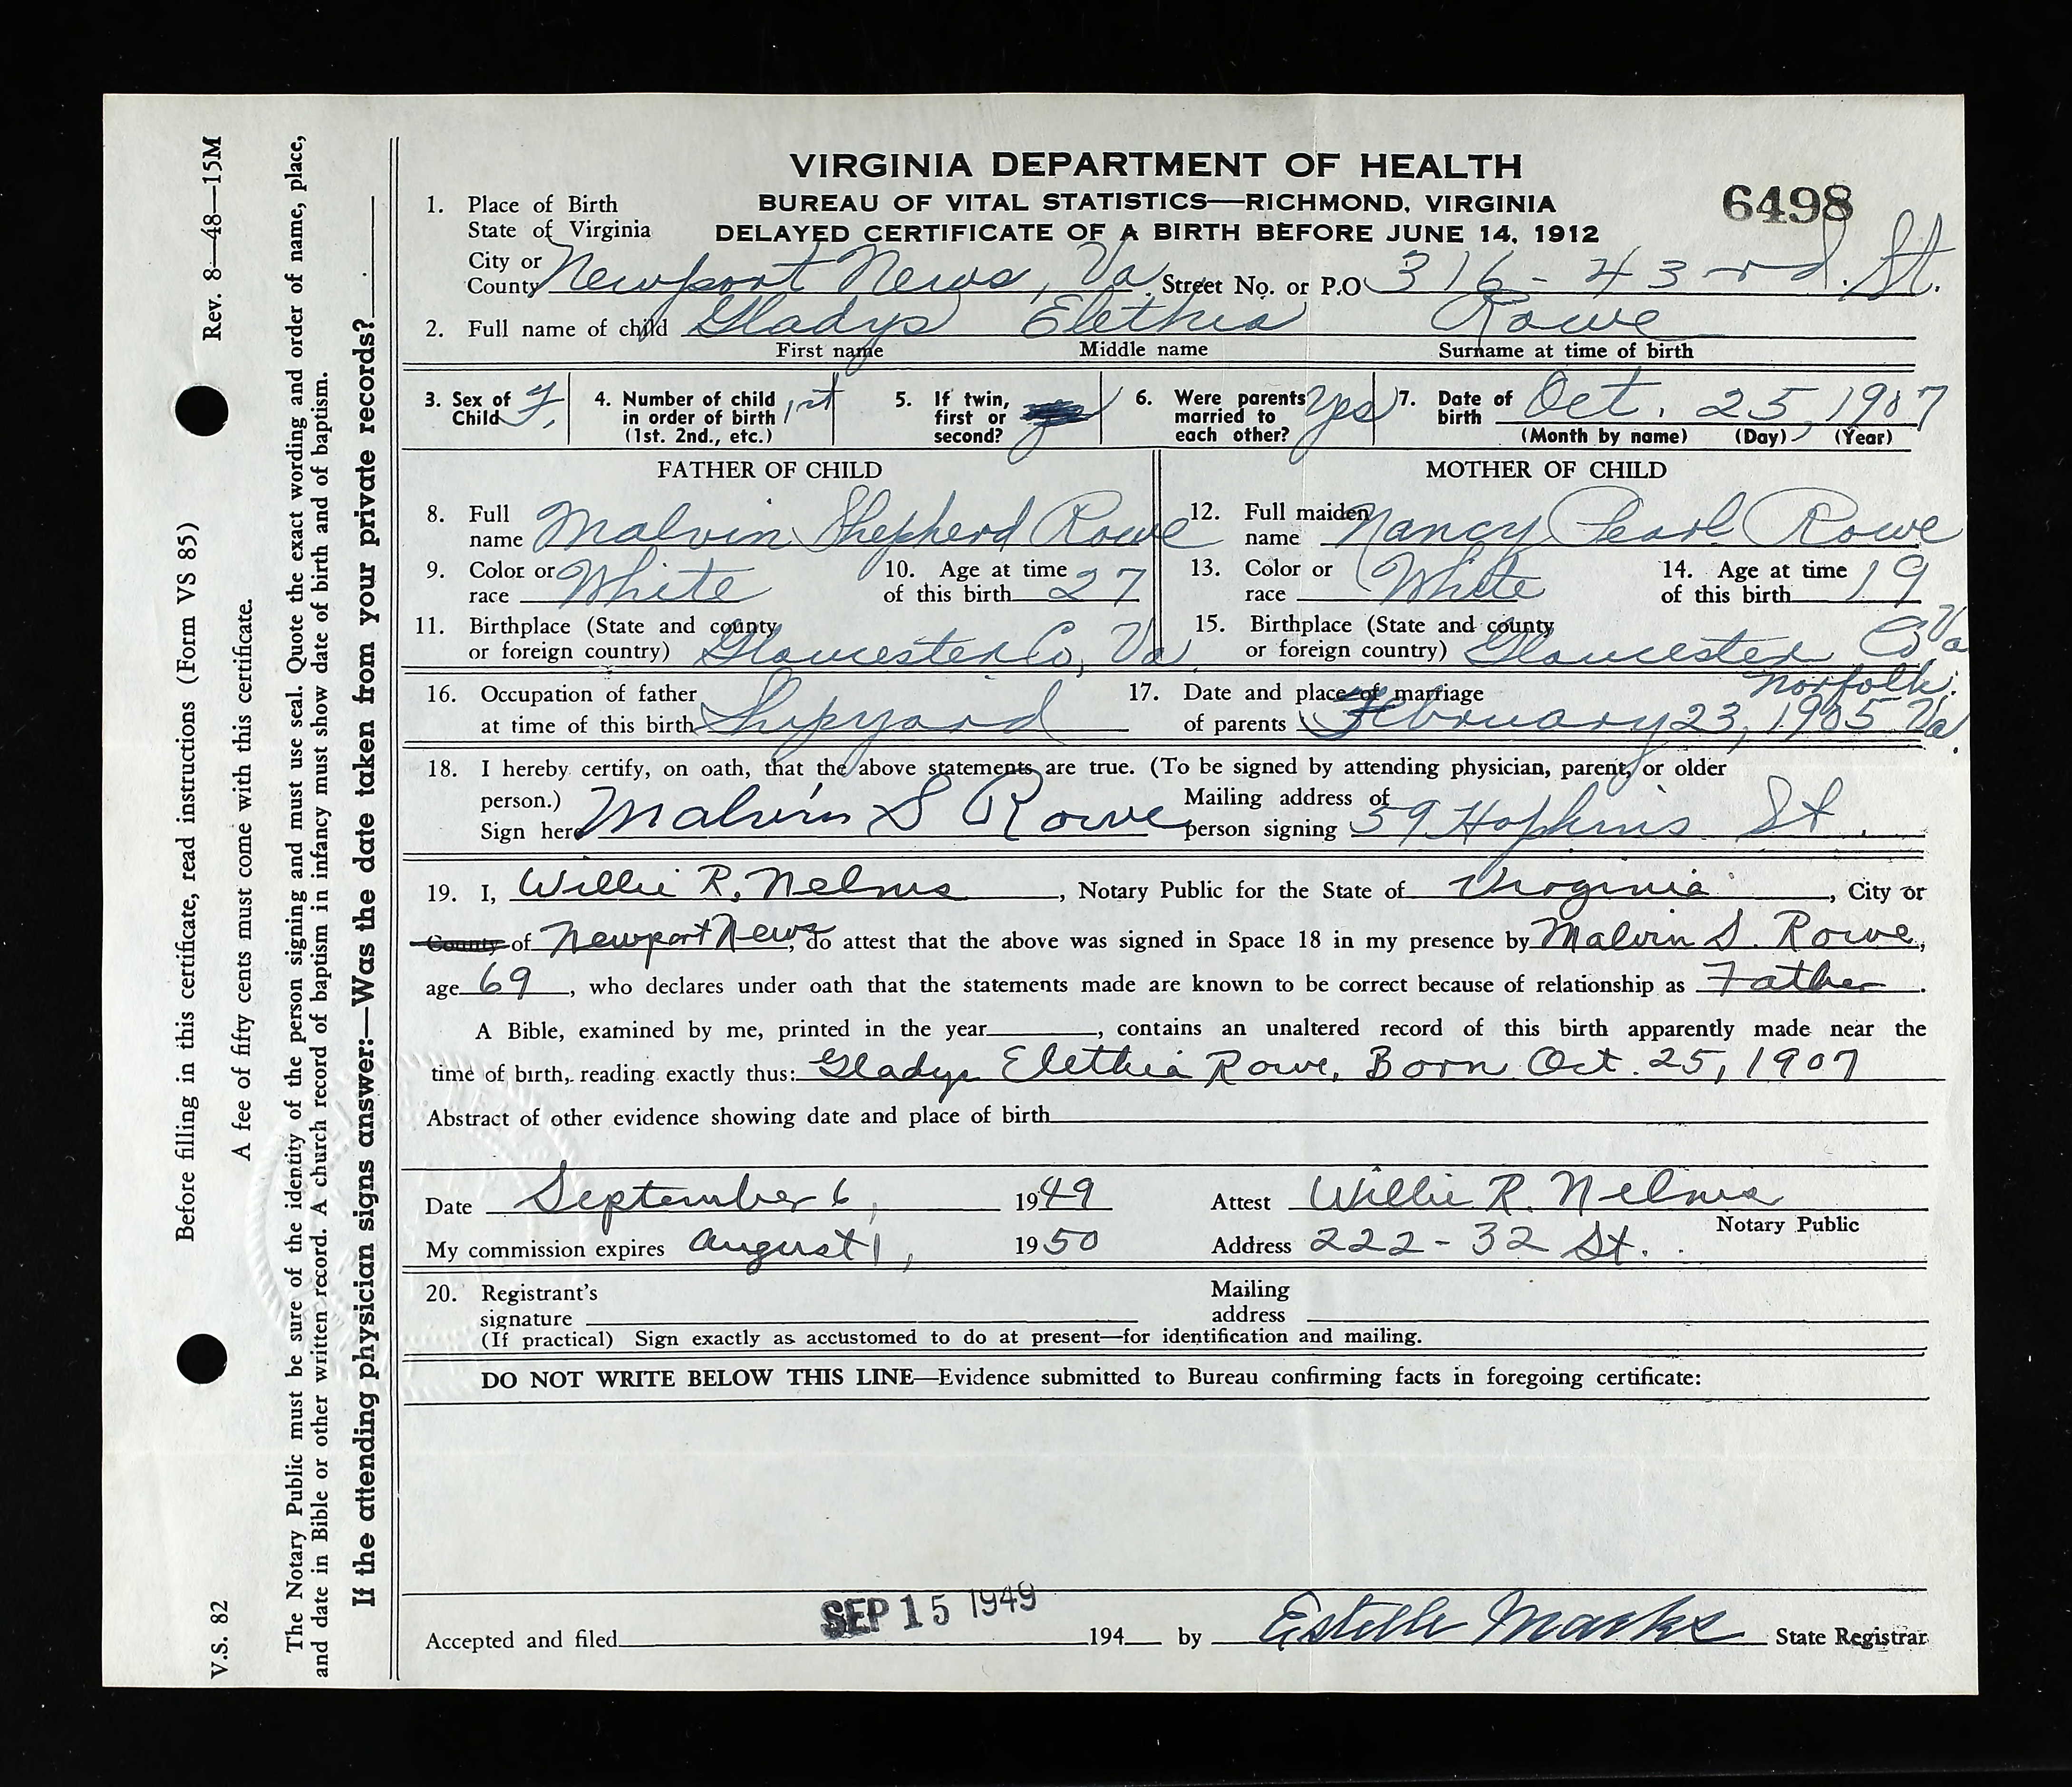 VIRGINIA DEPARTMENT OF HEALTH
BUREAU OF VITAL STATISTICS—RICHMOND, VIRGINIA
DELAYED CERTIFICATE OF A BIRTH BEFORE JUNE 14, 1912
6498
1. Place of Birth
State of Virginia
City or County Newport News, Va Street No. or P.O 316 - 43rd. St.
2. Full name of child Gladys Elethia Rowe
First name Middle name Surname at time of birth
3. Sex of Child F. 4. Number of child in order of birth (1st. 2nd., etc.) 1st 5. If twin, first or second? 6. Were parents married to each other? Yes 7. Date of birth Oct. 25, 1907
(Month by name) (Day) (Year)
FATHER OF CHILD MOTHER OF CHILD
8. Full name Malvin Shepherd Rowe 12. Full maiden name Nancy Pearl Rowe
9. Color or race White 10. Age at time of this birth 27 13. Color or race White 14. Age at time of this birth 19
11. Birthplace (State and county or foreign country) Gloucester Co, Va 15. Birthplace (State and county or foreign country) Gloucester Co Va
16. Occupation of father at time of this birth Shipyard 17. Date and place of marriage of parents February 23, 1905 Norfolk. Va.
18. I hereby certify, on oath, that the above statements are true. (To be signed by attending physician, parent, or older
person.) Sign here Malvin S Rowe Mailing address of person signing 59 Hopkins St.
19. I, Willie R. Nelms, Notary Public for the State of Virginia, City or
County of Newport News, do attest that the above was signed in Space 18 in my presence by Malvin S. Rowe,
age 69, who declares under oath that the statements made are known to be correct because of relationship as Father.
A Bible, examined by me, printed in the year, contains an unaltered record of this birth apparently made near the
time of birth, reading exactly thus: Gladys Elethia Rowe, Born Oct. 25, 1907
Abstract of other evidence showing date and place of birth
Date September 6, 1949 Attest Willie R. Nelms
Notary Public
My commission expires August 1, 1950 Address 222 - 32 St.
20. Registrant's signature Mailing address
(If practical) Sign exactly as accustomed to do at present—for identification and mailing.
DO NOT WRITE BELOW THIS LINE—Evidence submitted to Bureau confirming facts in foregoing certificate:
SEP 15 1949
Accepted and filed 194 by Estelle Marks State Registrar
V.S. 82 Before filling in this certificate, read instructions (Form VS 85) Rev. 8—48—15M
A fee of fifty cents must come with this certificate.
The Notary Public must be sure of the identity of the person signing and must use seal. Quote the exact wording and order of name, place,
and date in Bible or other written record. A church record of baptism in infancy must show date of birth and of baptism.
If the attending physician signs answer:—Was the date taken from your private records?